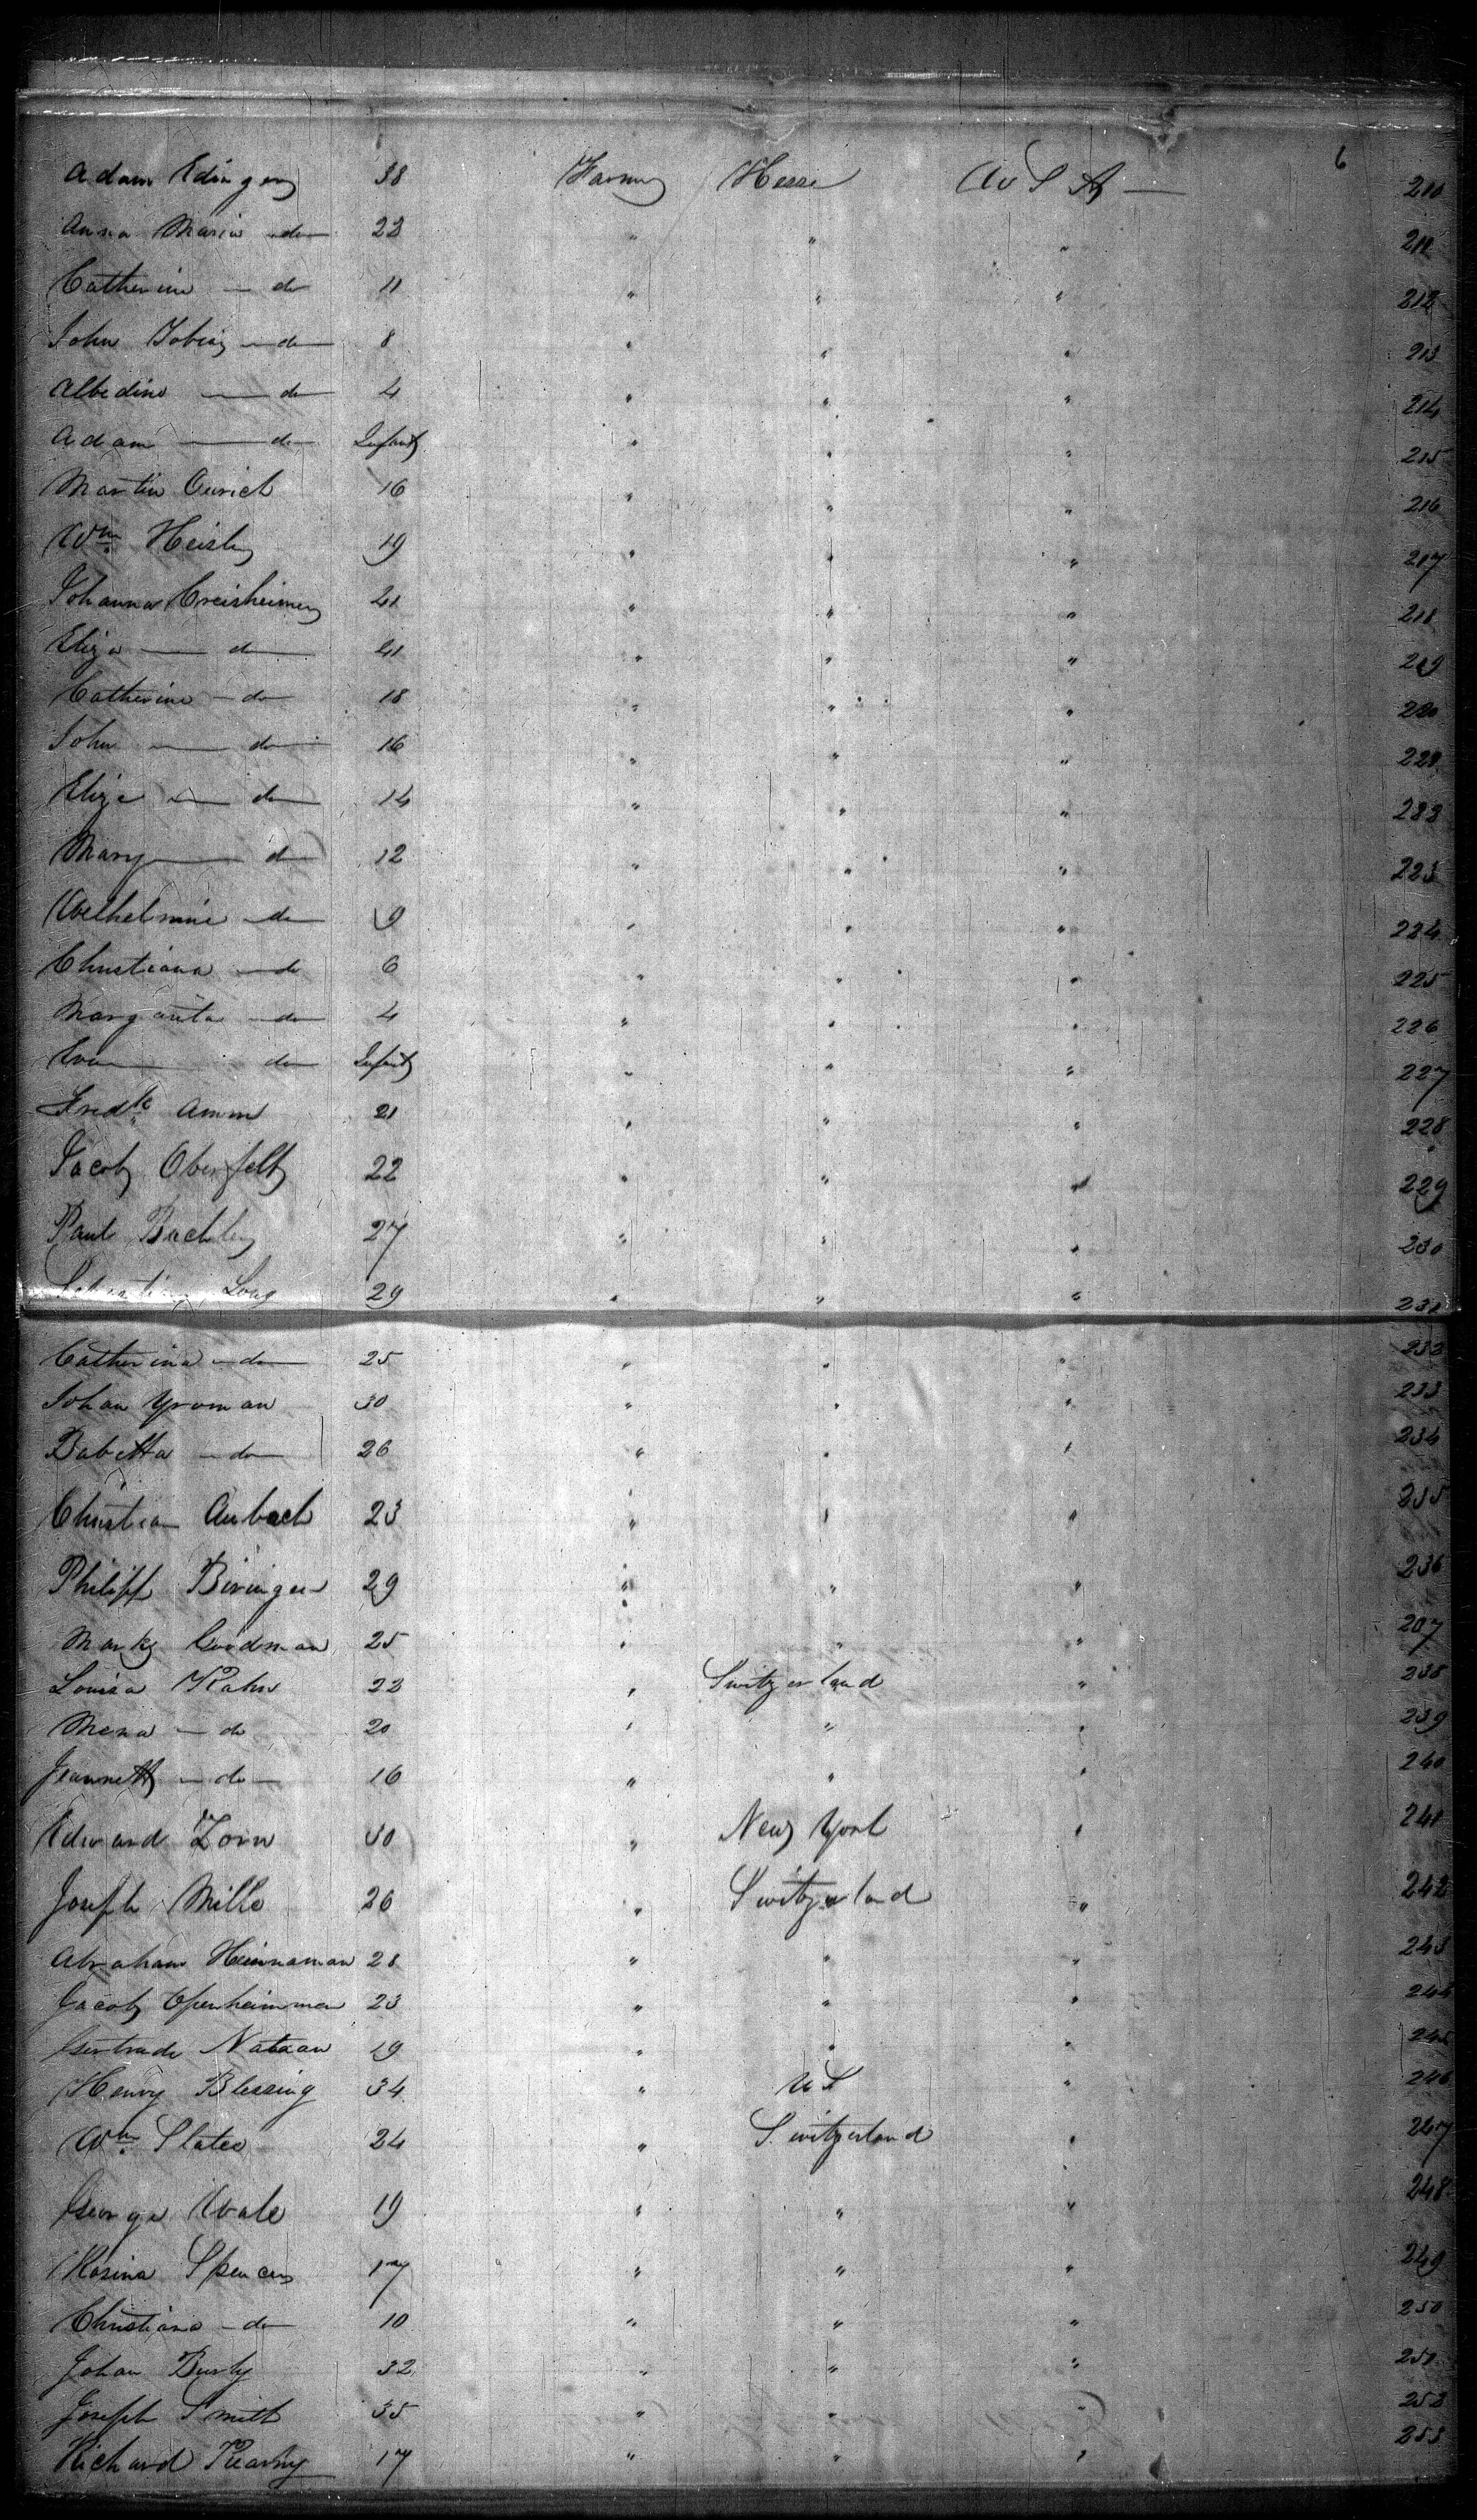 6
Adam Edinger 38 Farmer Hesse U S A — 210
Anna Maria — do — 22 " " " 211
Catherine — do 11 " " " 212
John Tobias — do — 8 " " " 213
Albedine — do — 4 " " " 214
Adam — do — Infant " " " 215
Martin Emrich 16 " " " 216
Wm Heisler 19 " " " 217
Johanna Creisheimer 41 " " " 218
Eliza — do — 41 " " " 219
Catherine — do 18 " " " 220
John — do — 16 " " " 221
Eliza — do — 14 " " " 222
Mary — do — 12 " " " 223
Welhelmine — do — 9 " " " 224
Christiana — do 6 " " " 225
Margarita — do — 4 " " " 226
Eva — do — Infant " " " 227
Fredk Amm 21 " " " 228
Jacob Oberfelt 22 " " " 229
Paul Bachler 27 " " " 230
Long 29 " " " 231
Catherina — do — 25 " " " 232
Johan Yroman 30 " " " 233
Babetta — do — 26 " " " 234
Christian Aubach 23 " " " 235
Philipp Biringer 29 " " " 236
Marks Goodman 25 " " " 237
Louisa Kahn 22 " Switzerland " 238
Mena — do 20 " " " 239
Jeannett — do — 16 " " " 240
Edward Zorn 30 " New York " 241
Joseph Mille 26 " Switzerland " 242
Abraham Heinnaman 28 " " " 243
Jacob Openheimmer 23 " " " 244
Gertrude Nataan 19 " " " 245
Henry Blessing 34 " U S " 246
Wm Slates 24 " Switzerland " 247
George Wale 19 " " " 248
Rosina Spencer 17 " " " 249
Christiana — do — 10 " " " 250
Johan Burly 32 " " " 251
Joseph Smith 35 " " " 252
Richard Kearny 17 " " " 253